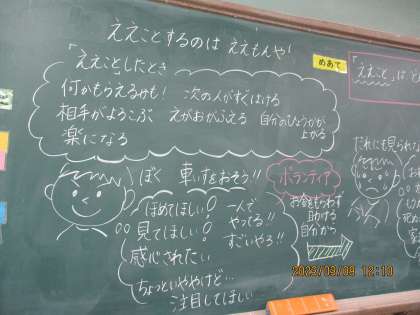 ええことするのは ええもんや
めあて
「ええことしたとき
「ええこと」は
何かもらえるかも! 次の人がすぐはける
相手がよろこぶ えがおがふえる 自分のひょうかが
上がる
楽になる
だれにも見られな
ぼく 車いすをおそう!!
ボランティア
お金をもらわず
助ける
自分から
ほめてほしい! 一人で
やってる!!
見てほしい! すごいやろ!!
感心されたい
ちょっといややけど…
注目してほしい
2023/09/08 12:10